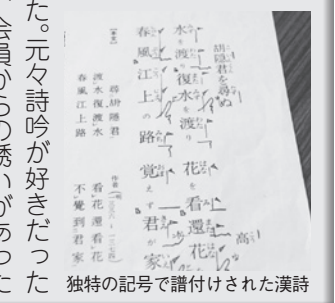 た。元々詩吟が好きだった
会員からの誘いがあった
胡隠君を尋ぬ
水を渡り復水を渡り
花を看還花
春風江上の路
覚えず君が家
高
尋胡隠君
渡水復渡水
看花還看花
春風江上路
不覺到君家
独特の記号で譜付けされた漢詩